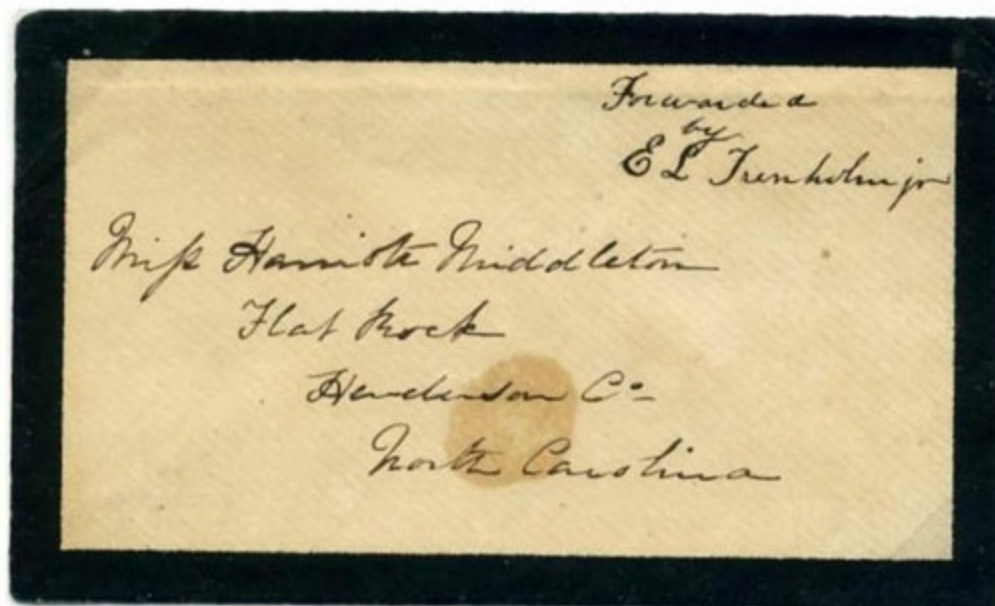 Forwarded
by
E L Trenholm jr
Miss Harriott Middleton
Flat Rock
Henderson Co
North Carolina